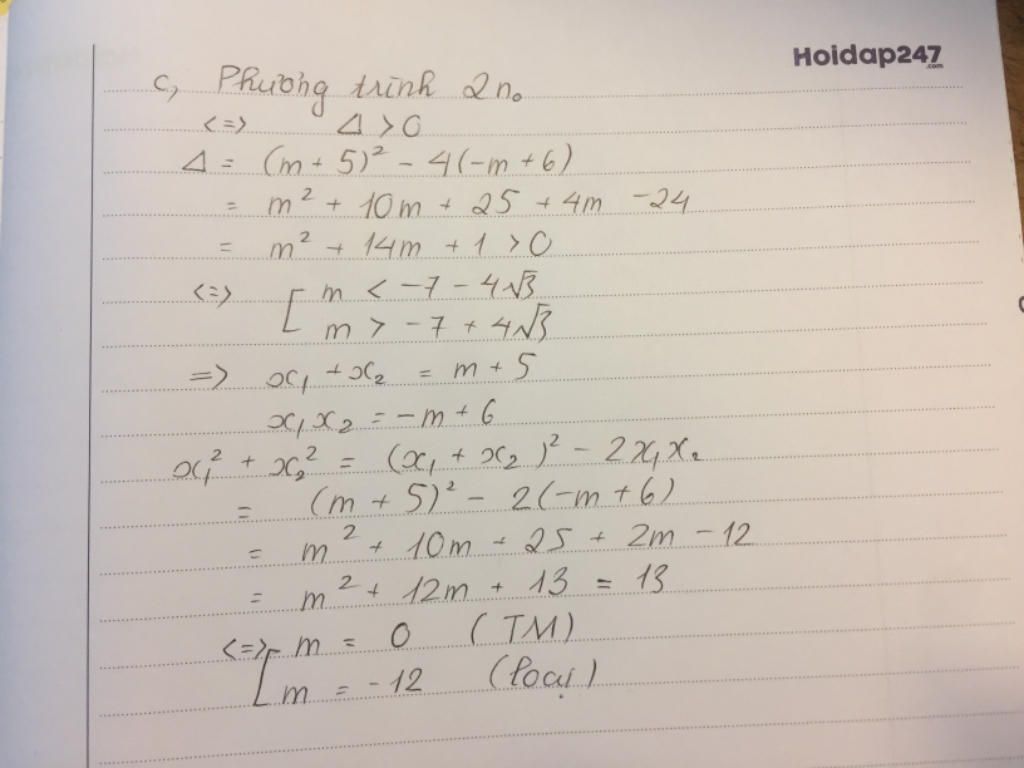 Hoidap247
.com
c, Phương trình 2 n₀
<=> Δ > 0
Δ = (m + 5)² - 4(-m + 6)
= m² + 10m + 25 + 4m - 24
= m² + 14m + 1 > 0
<=> [ m < -7 - 4√3
m > -7 + 4√3
=> x₁ + x₂ = m + 5
x₁x₂ = -m + 6
x₁² + x₂² = (x₁ + x₂)² - 2x₁x₂
= (m + 5)² - 2(-m + 6)
= m² + 10m + 25 + 2m - 12
= m² + 12m + 13 = 13
<=> [ m = 0 (TM)
m = -12 (loại)